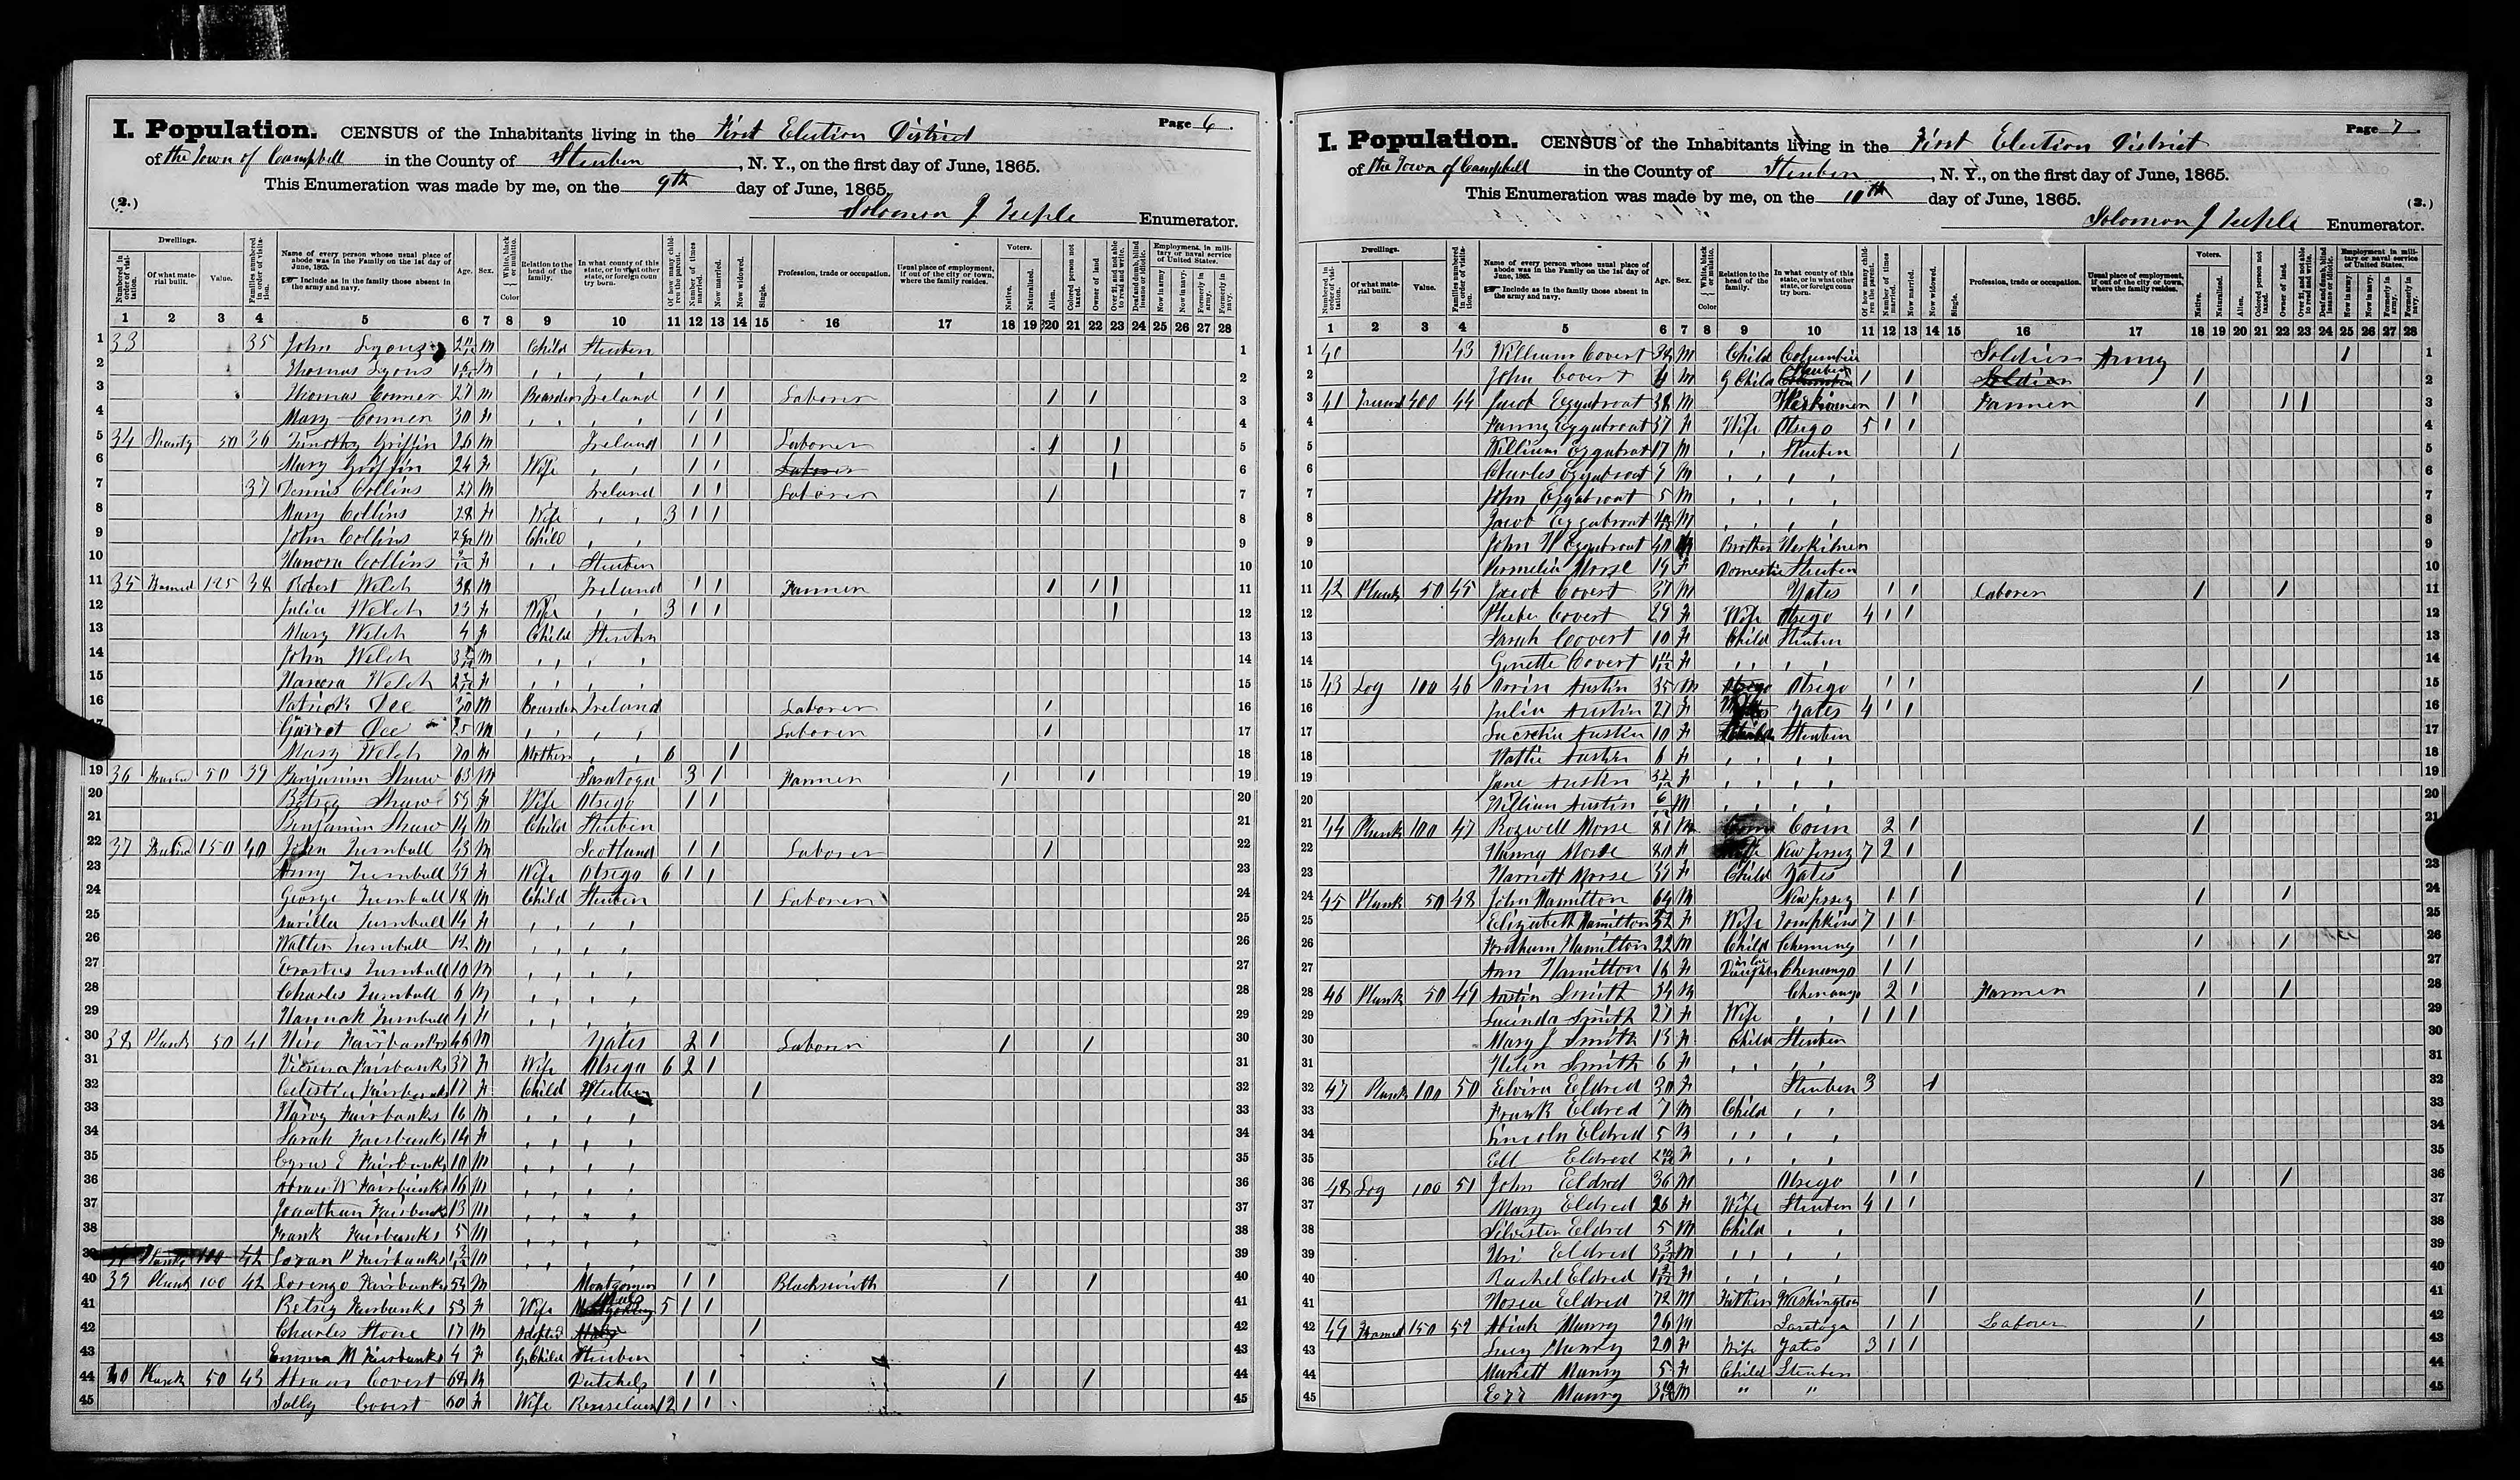 Page 6.
I. Population. CENSUS of the Inhabitants living in the First Election District
of the Town of Campbell in the County of Steuben, N. Y., on the first day of June, 1865.
This Enumeration was made by me, on the 9th day of June, 1865.
(2.) Solomon J Teeple Enumerator.
1 33 35 John Lyons 2 11/12 M Child Steuben 1
2 Thomas Lyons M , , , , 2
3 Thomas Conner 27 M Boarder Ireland 1 1 Laborer 1 1 3
4 Mary Conner 30 F , , , , 1 1 4
5 34 Shanty 50 36 Timothy Griffin 26 M Ireland 1 1 Laborer 1 1 5
6 Mary Griffin 24 F Wife , , 1 1 Laborer 1 6
7 37 Dennis Collins 27 M Ireland 1 1 Laborer 1 7
8 Mary Collins 28 F Wife , , 3 1 1 8
9 John Collins M Child , , 9
10 Hanora Collins F , , Steuben 10
11 35 Framed 125 38 Robert Welch 38 M Ireland 1 1 Farmer 1 1 1 11
12 Julia Welch 23 F Wife , , 3 1 1 1 12
13 Mary Welch 4 F Child Steuben 13
14 John Welch M , , , , 14
15 Hanora Welch F , , , , 15
16 Patrick Dee 30 M Boarder Ireland Laborer 1 16
17 Garret Dee 25 M , , , , Laborer 1 17
Mary Welch 70 F Mother , , 6 1 18
19 36 Framed 50 39 Benjamin Shaw 63 M Saratoga 3 1 Farmer 1 1 19
20 Betsey Shaw 59 F Wife Otsego 1 1 20
21 Benjamin Shaw 14 M Child Steuben 21
22 37 Framed 150 40 John Turnbull 43 M Scotland 1 1 Laborer 1 22
23 Amy Turnbull 39 F Wife Otsego 6 1 1 23
24 George Turnbull 18 M Child Steuben 1 Laborer 24
25 Turnbull 14 F , , , , 25
26 Walter Turnbull 12 M , , , , 26
27 Erastus Turnbull 10 M , , , , 27
28 Charles Turnbull 6 M , , , , 28
29 Hannah Turnbull 4 F , , , , 29
30 38 Plank 50 41 Fairbanks 46 M Yates 2 1 Laborer 1 1 30
31 Vienna Fairbanks 37 F Wife Otsego 6 2 1 31
32 Celestia Fairbanks 17 F Child Steuben 1 32
33 Harvy Fairbanks 16 M , , , , 33
34 Sarah Fairbanks 14 F , , , , 34
35 Cyrus E Fairbanks 10 M , , , , 35
36 Abram W Fairbanks 16 M , , , , 36
37 Jonathan Fairbanks 13 M , , , , 37
38 Frank Fairbanks 5 M , , , , 38
39 Plank 100 42 Loran P Fairbanks M , , , , 39
40 39 Plank 100 42 Lorenzo Fairbanks 54 M Montgomery 1 1 Blacksmith 1 1 40
41 Betsey Fairbanks 53 F Wife 5 1 1 41
42 Charles Stone 17 M Adopted 1 42
43 Emma M Fairbanks 4 F G Child Steuben 43
44 40 Plank 50 43 Abram Covert 68 M Dutchess 1 1 1 1 44
45 Sally Covert 60 F Wife Renselaer 12 1 1 45
Page 7.
I. Population. CENSUS of the Inhabitants living in the First Election District
of the Town of Campbell in the County of Steuben, N. Y., on the first day of June, 1865.
This Enumeration was made by me, on the 10th day of June, 1865.
(3.) Solomon J Teeple Enumerator.
1 40 43 William Covert M Child Columbia Soldier Army 1 1
2 John Covert 4 M G Child Steuben 1 1 Soldier 1 2
3 41 Framed 400 44 Jacob Eggabroat 38 M Herkimer 1 1 Farmer 1 1 1 3
4 Fanny Eggabroat 37 F Wife Otsego 5 1 1 4
5 William Eggabroat 17 M , , Steuben 1 5
6 Charles Eggabroat 9 M , , , , 6
7 John Eggabroat 5 M , , , , 7
8 Jacob Eggabroat M , , , , 8
9 John W Eggabroat 40 M Brother Herkimer 9
10 Permelia Morse 19 F Domestic Steuben 10
11 42 Plank 50 45 Jacob Covert 37 M Yates 1 1 Laborer 1 1 11
12 Pheebe Covert 29 F Wife Otsego 4 1 1 12
13 Sarah Covert 10 F Child Steuben 13
14 Genette Covert 1 11/12 F , , , , 14
15 43 Log 100 46 Orrin Austin 35 M Otsego Otsego 1 1 1 1 15
16 Julia Austin 27 F Wife Yates 4 1 1 16
17 Lucretia Austin 10 F Steuben 17
18 Hattie Austin 6 F , , , , 18
19 Jane Austin F , , , , 19
20 William Austin 6/12 M , , , , 20
21 44 Plank 100 47 Rozwell Morse 81 M Conn 2 1 1 21
22 Morse 80 F Wife New Jersey 7 2 1 22
23 Harriett Morse 39 F Child Yates 1 23
24 45 Plank 50 48 John Hamilton 64 M New Jersey 1 1 1 1 24
25 Elizabeth Hamilton 52 F Wife Tompkins 7 1 1 25
26 Hamilton 22 M Child Chemung 1 1 1 1 26
27 Ann Hamilton 16 F Daughter in law Chenango 1 1 27
28 46 Plank 50 49 Austin Smith 34 M Chenango 2 1 Farmer 1 1 28
29 Lucinda Smith 27 F Wife , , 1 1 1 29
30 Mary J Smith 13 F Child Steuben 30
31 Helen Smith 6 F , , , , 31
32 47 Plank 100 50 Elvira Eldred 30 F Steuben 3 1 32
33 Frank Eldred 7 M Child , , 33
34 Lincoln Eldred 5 M , , , , 34
35 Ell Eldred F , , , , 35
36 48 Log 100 51 John Eldred 36 M Otsego 1 1 1 1 36
37 Mary Eldred 26 F Wife Steuben 4 1 1 37
38 Silvester Eldred 5 M Child , , 38
39 Uri Eldred M , , , , 39
40 Rachel Eldred F , , , , 40
41 Hosea Eldred 72 M Father Washington 1 1 41
42 49 Framed 150 52 Munry 26 M Saratoga 1 1 Laborer 1 42
43 Lucy Munry 20 F Wife Yates 3 1 1 43
44 Mariett Munry 5 F Child Steuben 44
45 Ezr Munry M " " 45